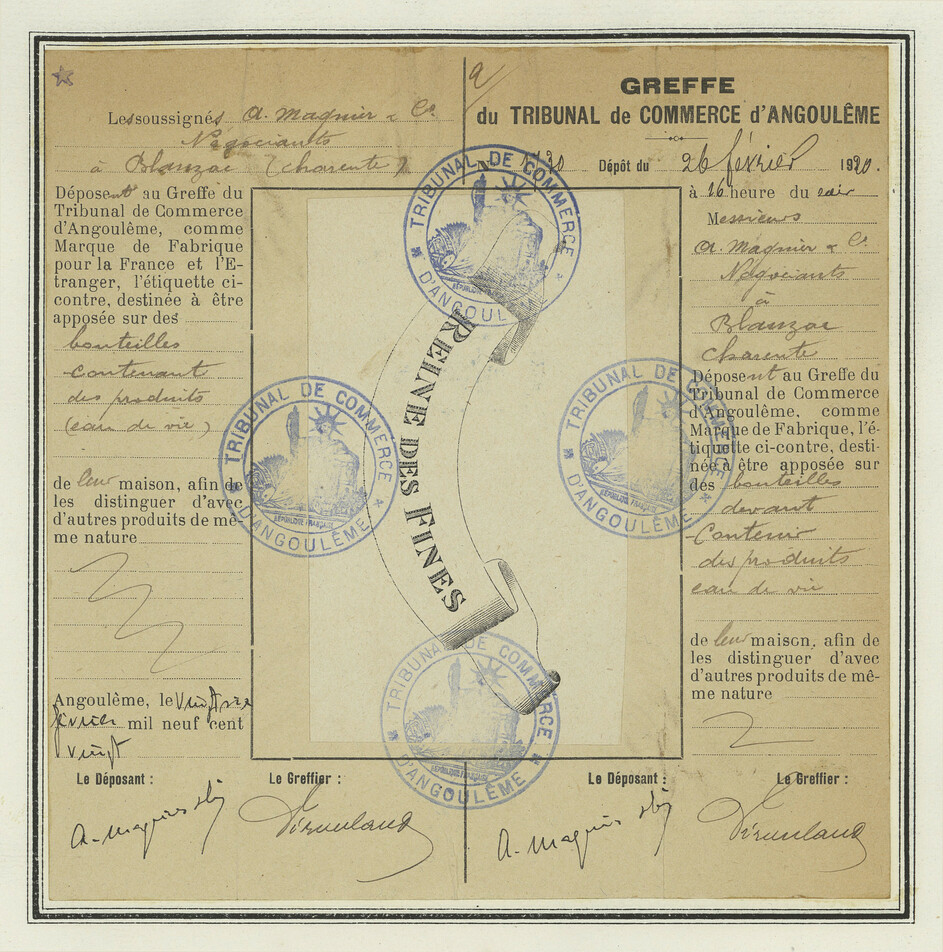 Lessoussignés A. Magnier & Cie
Négociants
à Blanzac (Charente)
Déposent au Greffe du
Tribunal de Commerce
d'Angoulême, comme
Marque de Fabrique
pour la France et l'E-
tranger, l'étiquette ci-
contre, destinée à être
apposée sur des
bouteilles
contenant
des produits
(eau de vie)
de leur maison, afin de
les distinguer d'avec
d'autres produits de mê-
me nature
Angoulême, le Vingt six
février mil neuf cent
vingt
Le Déposant :
Le Greffier :
A. Magnier
REINE DES FINES
TRIBUNAL DE COMMERCE
D'ANGOULÊME
RÉPUBLIQUE FRANÇAISE
TRIBUNAL DE COMMERCE
D'ANGOULÊME
RÉPUBLIQUE FRANÇAISE
TRIBUNAL DE COMMERCE
D'ANGOULÊME
RÉPUBLIQUE FRANÇAISE
TRIBUNAL DE COMMERCE
D'ANGOULÊME
RÉPUBLIQUE FRANÇAISE
GREFFE
du TRIBUNAL de COMMERCE d'ANGOULÊME
Dépôt du 26 février 1920.
à 16 heure du soir
Messieurs
A. Magnier & Cie
Négociants
à
Blanzac
Charente
Déposent au Greffe du
Tribunal de Commerce
d'Angoulême, comme
Marque de Fabrique, l'é-
tiquette ci-contre, desti-
née à être apposée sur
des bouteilles
devant
Contenir
des produits
eau de vie
de leur maison, afin de
les distinguer d'avec
d'autres produits de mê-
me nature
Le Déposant :
Le Greffier :
A. Magnier